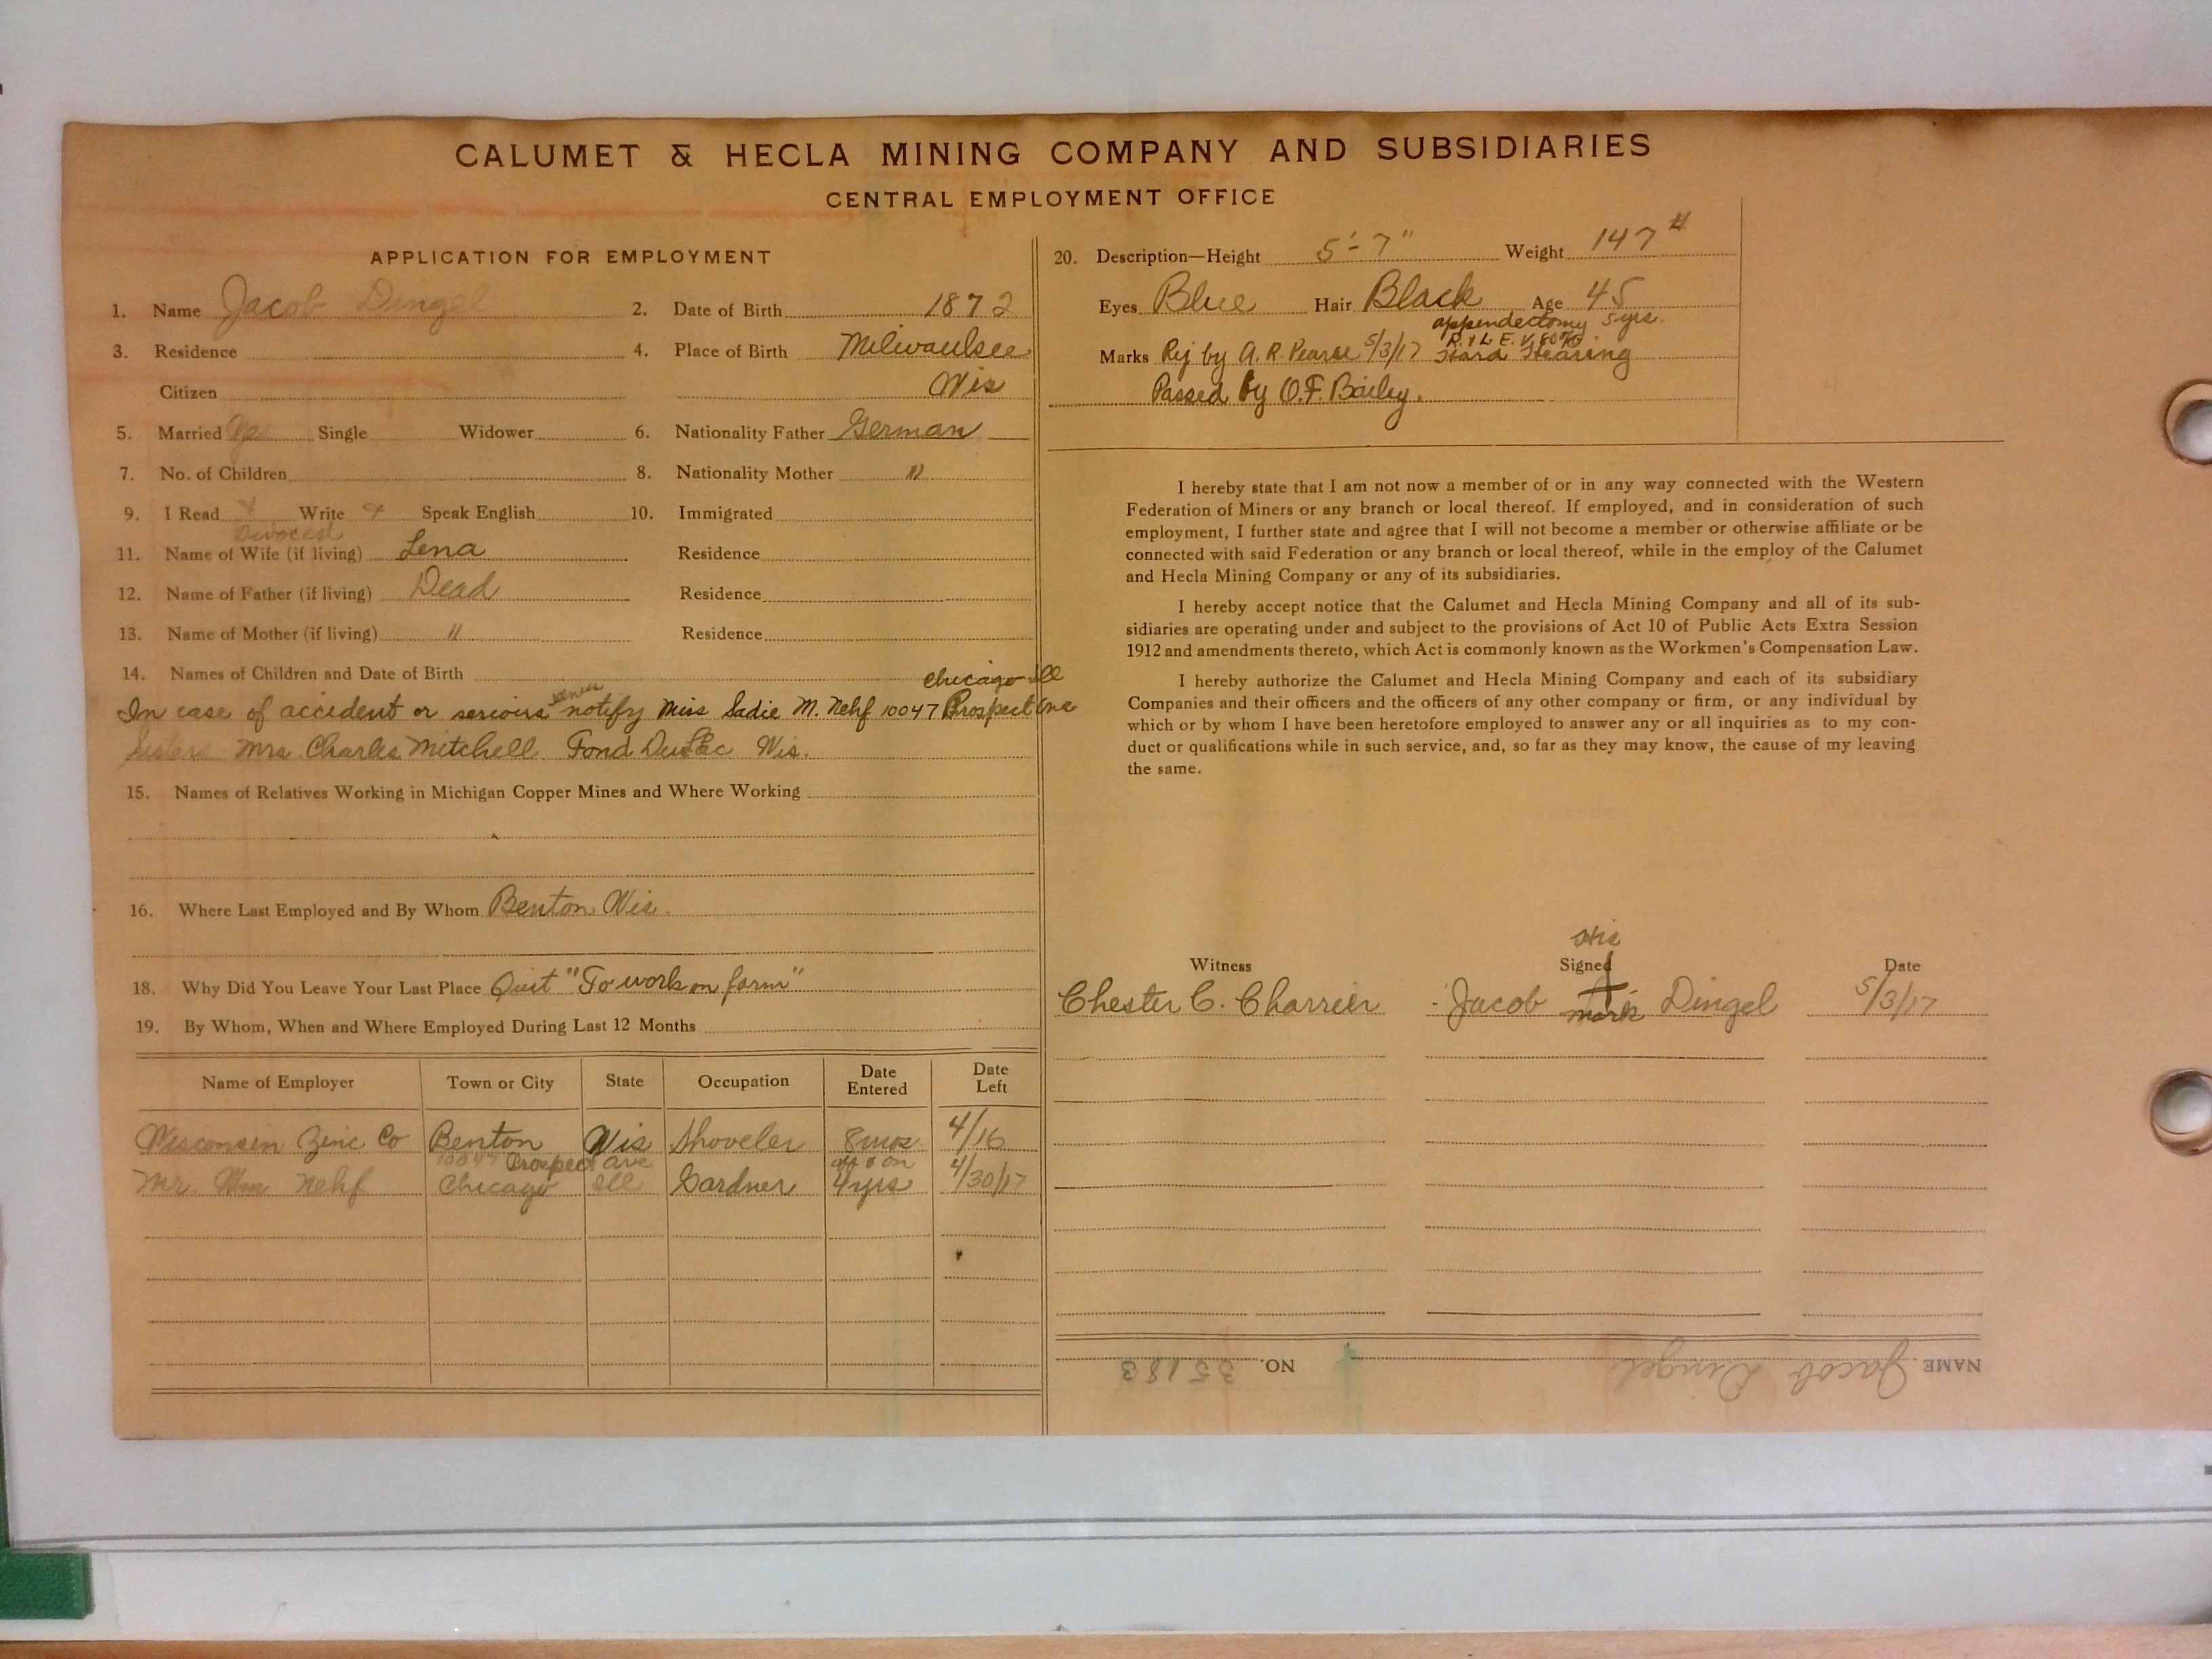 CALUMET & HECLA MINING COMPANY AND SUBSIDIARIES
CENTRAL EMPLOYMENT OFFICE
APPLICATION FOR EMPLOYMENT
1. Name Jacob Dingel 2. Date of Birth 1872
3. Residence 4. Place of Birth Milwaulsee
Citizen Wis
5. Married Single Widower 6. Nationality Father German
7. No. of Children 8. Nationality Mother "
9. I Read Write Speak English 10. Immigrated
Divoced
11. Name of Wife (if living) Lena Residence
12. Name of Father (if living) Dead Residence
13. Name of Mother (if living) " Residence
14. Names of Children and Date of Birth
chicago Ill
In case of accident or serious notify Miss Sadie M. Nehf 10047 Prospect ave
Sisters Mrs Charles Mitchell Fond DuLac Wis.
15. Names of Relatives Working in Michigan Copper Mines and Where Working
16. Where Last Employed and By Whom Benton Wis.
18. Why Did You Leave Your Last Place Quit "To work on farm"
19. By Whom, When and Where Employed During Last 12 Months
Name of Employer Town or City State Occupation Date Entered Date Left
Wisconsin Zinc Co Benton Wis Shoveler 8 mos. 4/16
10047 Prospect ave off & on
Mr. Wm Nehf Chicago Ill Gardner 4 yrs 4/30/17
20. Description—Height 5'-7" Weight 147 #
Eyes Blue Hair Black Age 45
appendectomy 5 yrs.
Marks Rej by A. R. Pearse 5/3/17 Hard Hearing
Passed by O.F. Bailey.
I hereby state that I am not now a member of or in any way connected with the Western
Federation of Miners or any branch or local thereof. If employed, and in consideration of such
employment, I further state and agree that I will not become a member or otherwise affiliate or be
connected with said Federation or any branch or local thereof, while in the employ of the Calumet
and Hecla Mining Company or any of its subsidiaries.
I hereby accept notice that the Calumet and Hecla Mining Company and all of its sub-
sidiaries are operating under and subject to the provisions of Act 10 of Public Acts Extra Session
1912 and amendments thereto, which Act is commonly known as the Workmen's Compensation Law.
I hereby authorize the Calumet and Hecla Mining Company and each of its subsidiary
Companies and their officers and the officers of any other company or firm, or any individual by
which or by whom I have been heretofore employed to answer any or all inquiries as to my con-
duct or qualifications while in such service, and, so far as they may know, the cause of my leaving
the same.
His
Witness Signed Date
Chester C. Charrier Jacob Dingel 5/3/17
mark
NAME Jacob Dingel NO. 35183